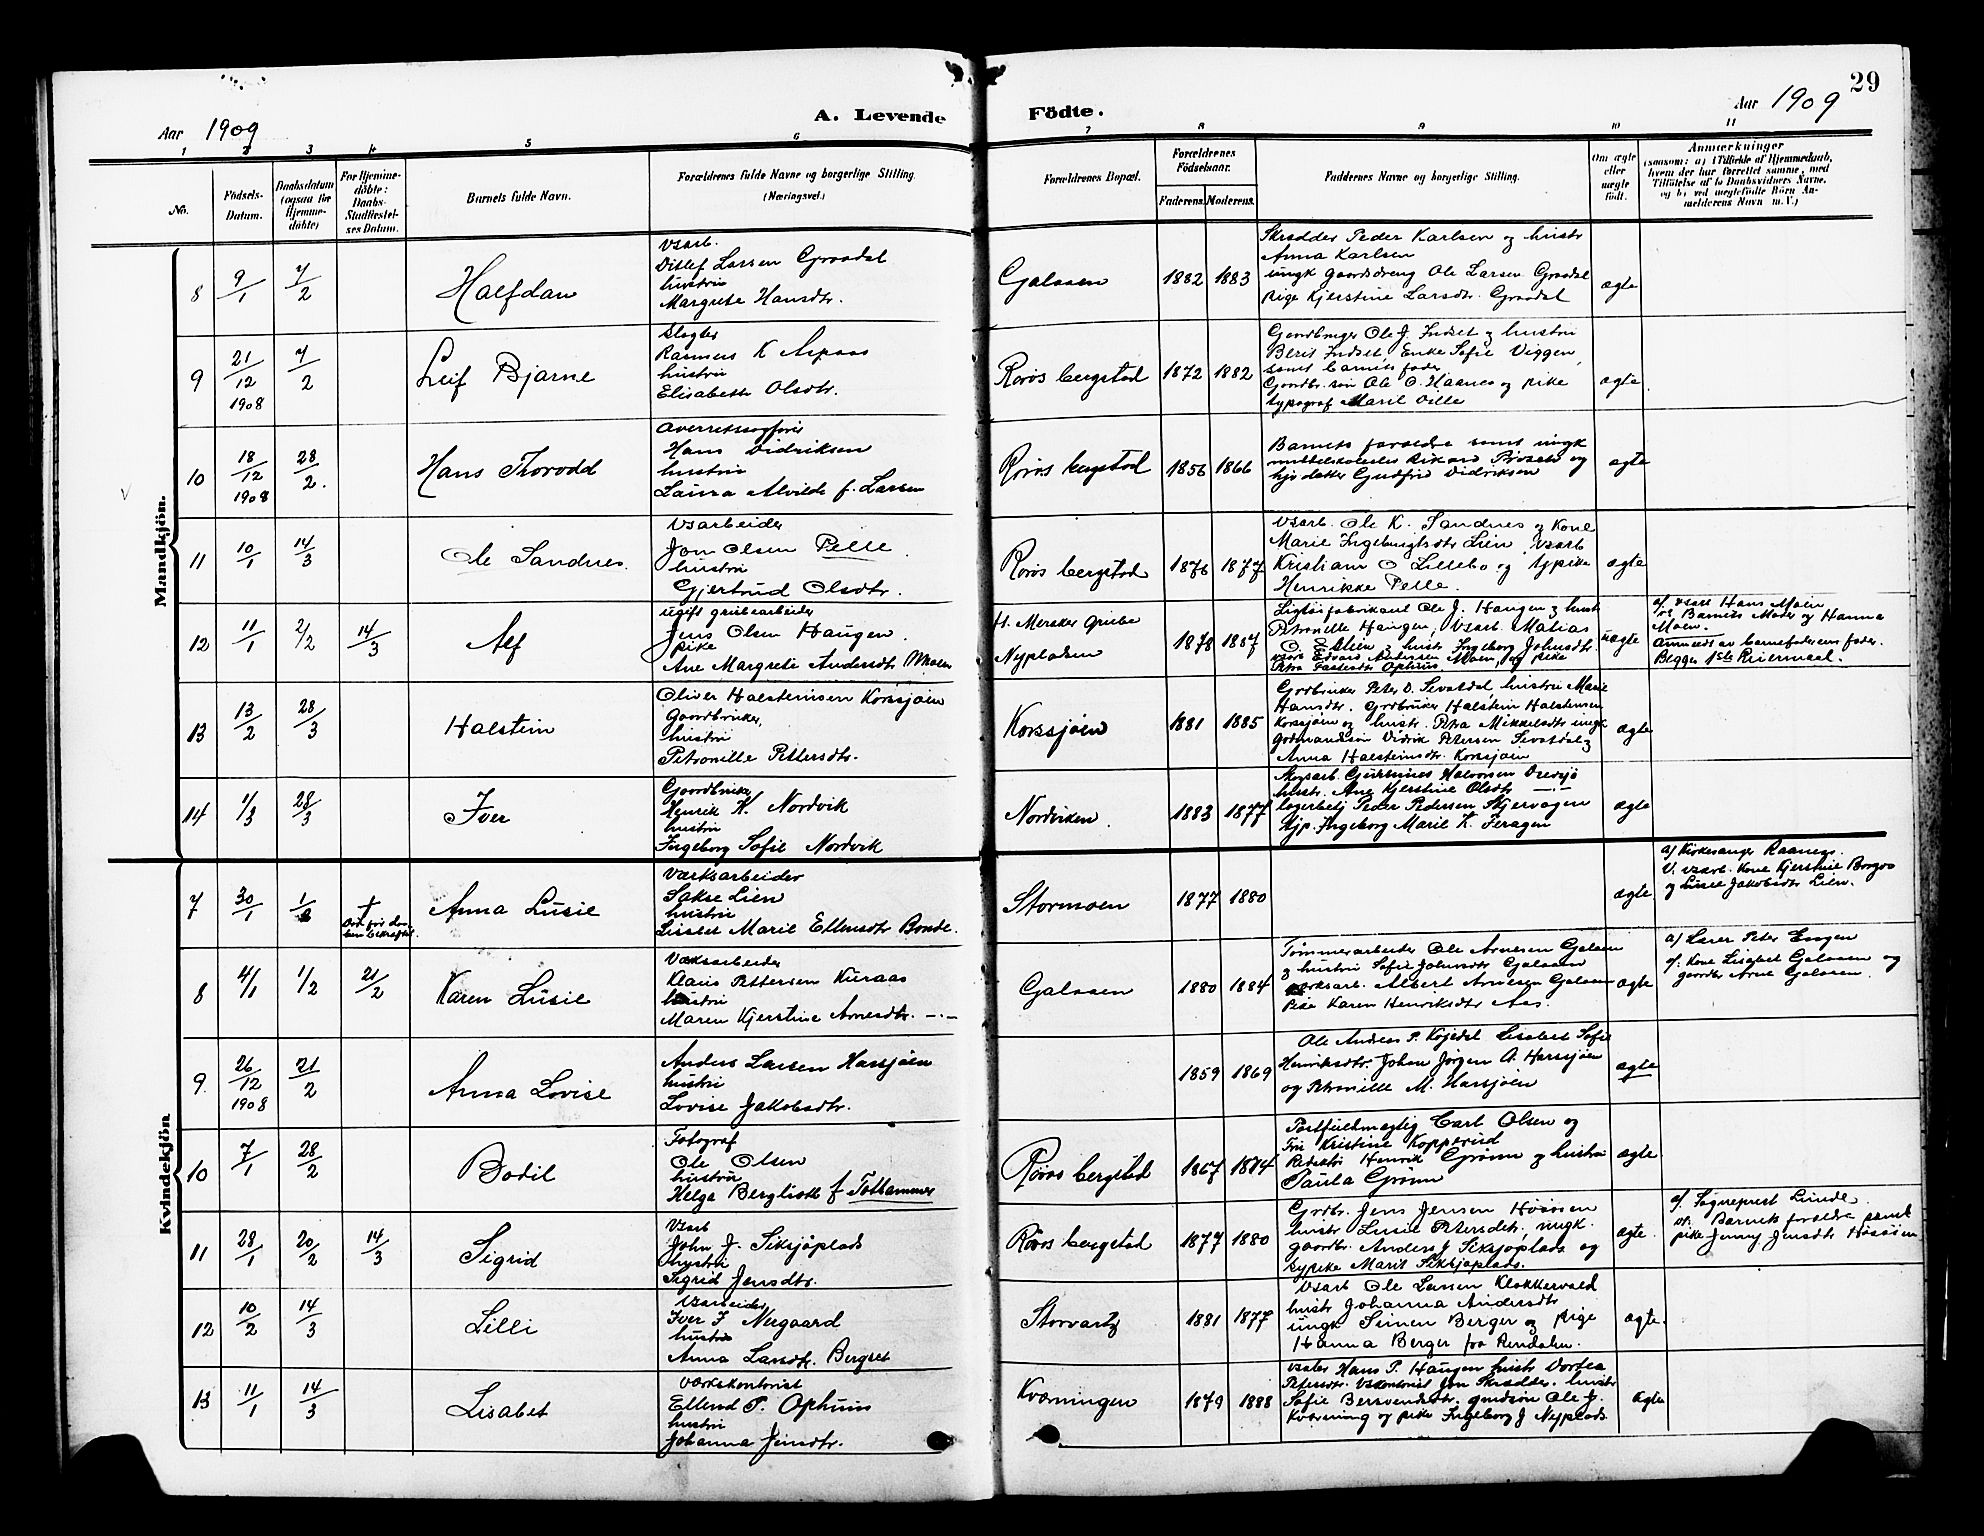 29
Aar 1909
A. Levende Födte.
Aar 1909
1 2 3 4 5 6 7 8 9 10 11
No.
Födsels-
Datum.
Daabsdatum
(ogsaa for
Hjemme-
døbte)
For Hjemme-
döbte:
Daabs-
Stadfæstel-
ses Datum.
Barnets fulde Navn.
Forældrenes fulde Navne og borgerlige Stilling.
(Næringsvei.)
Forældrenes Bopæl.
Forældrenes
Födselsaar.
Faderens.
Moderens.
Faddernes Navne og borgerlige Stilling.
Om ægte
eller
uægte
födt.
Anmærkninger
(saasom: a) i Tilfælde af Hjemmedaab,
hvem der har forrettet samme, med
Tilföielse af to Daabsvidners Navne,
og b) ved uægtefödte Börn An-
melderens Navn m. V.)
Mandkjön.
8 9/1 7/2 Halfdan
Vsarb.
Ditlef Larsen Graadal
hustru
Margrete Hansdtr.
Galaaen 1882 1883
Skrædder Peder Karlsen og hustr
Anna Karlsen
ungk gaardsdreng Ole Larsen Graadal
Pige Kjerstine Larsdtr. Graadal
ægte
9 21/12 1908 7/2 Leif Bjarne
Slagter
Rasmus K Aspaas
hustru
Elisabeth Olsdtr.
Røros bergstad 1872 1882
Gaardbruger Ole J. Indset og hustru
Berit Indset, Enke Sofie Viggen,
samt barnets fader
Gaardbr. søn Ole O. Haanes og pike
typograf Marie
ægte
10 18/12 1908 28/2. Hans Thorodd
Overretssagfører
Hans Didriksen
hustru
Laura Alvilde f. Larsen
Røros bergstad 1856 1866
Barnets forældre samt ungk
middelskolelev Rikard og
hjd datter Gudfrid Didriksen
ægte
11 10/1 14/3 Ole Sandnes.
Vsarbeider
Jon Olsen Pelle.
hustru
Gjertrud Olsdtr.
Røros bergstad 1876 1877
Vsarb. Ole K. Sandnes og Kone
Marie Ingebrigtsdtr Lien, Vsarb
Kristian O Lillebo og typike
Henrikke Pelle.
ægte
12 11/1 2/2 14/3 Alf
ugift grubearbeider
Jens Olsen Haugen.
pike
Ane Margrete Andersdtr Moen
H. Mersker Grube
Nypladsen 1878 1887
Ole J. Haugen og hust
Petronille Haugen, Vsarb. Matias
O. Eithun og hustr Ingeborg Johnsdtr.
vsarb Edvard Andersen Moen, og pike
Petra Ophuus
uægte
a/ vsarb Hans Moen
v. Barnets Moder og Hanna
Moen.
Anmeldt av barnefaderens fader.
Begges 1ste Leiermaal.
13 13/2 28/3 Halstein
Oliver Halsteinsen Korssjøen
Gaardbruker,
hustru
Petronille Pettersdtr.
Korssjøen 1881 1885
Grdbruker Peter O. Sevatdal, hustru Marie
Hansdtr. Grdbruker Halstein Halstensen
Korssjøen og hustr. Petra Mikkelsdtr ungk
Gdmandssøn Didrik Petersen Sevatdal og
Anna Halsteinsdtr. Korssjøen
ægte
14 1/3 28/3 Iver
Gaardbruker
Henrik K. Nordvik
hustru
Ingeborg Sofie Nordvik
Nordviken. 1883 1877
Halvorsen
hustr. Ane Kjerstine Olsdtr —·—
Peder Pedersen Skjervagen
Ingeborg Marie K. Feragen
ægte
Kvindekjön
7 30/1 1/2 † Død før daaben bekræftet.
Anna Lusie
Værksarbeider
Sakse Lien
hustru
Lisbet Marie Ellensdtr Bonde.
Stormoen 1877 1880
ægte
a/ Kirkesanger Raaness.
V. vsarb. Kone Kjerstine Borgos
og Lusie Jakobsdtr Lien.
8 4/1 1/2 21/2 Karen Lusie
Værksarbeider
Klaus Pettersen Kuraas
hustru
Maren Kjerstine Arnesdtr. —·—
Galaaen 1880 1884
Tømmerarbeider Ole Arnesen Galaaen
og hustru Sofie Johnsdtr Galaaen
værksarb. Albert Arnesen Galaaen
Pike Karen Henriksdtr Aas.
ægte
a/ Lærer Peter Engen
v/. Kone Lisabet Galaaen og
gaardbr Arne Galaaen.
9. 26/12 1908 21/2 Anna Lovise
Anders Larsen Harsjøen
hustru
Lovise Jakobsdtr.
1859 1869
Ole Andreas P. Kojedal Lisabet Sofie
Henriksdtr. Johan Jørgen A. Harsjøen
og Petronille M. Harsjøen
ægte
10 7/1 28/2 Bodil
Fotograf
Ole Olsen
hustru
Helga Bergliot f. Tothammer
Røros bergstad 1867 1874
Postfuldmægtig Carl Olsen og
Fru Kristine Kopperud
Redaktør Henrik Grønn og hustru
Paula Grønn
ægte
11 28/1 20/2 14/3 Sigrid
Vsarb
John J. Siksjøplads
hustru
Sigrid Jensdtr.
Røros bergstad 1877 1880
Grdbr. Jens Jensen Høsøien
hustr Lusie Petersdtr, ungk.
gaardbr. Anders J Siksjøplads og
typike Marit Siksjøplads.
ægte.
a/. Sogneprest Lunde.
v. Barnets forældre samt
pike Jenny Jensdtr Høsøien
12 10/2 14/3 Lilli
Vsarbeider
Iver J. Nergaard
hustru
Anna Larsdtr. Bergset
Storvartz 1881 1877
Vsarb Ole Larsen Klokkervold
hustr Johanna Andersdtr
ungk Simen Berger og Pige
Hanna Berger fra Rendalen.
ægte.
13 11/1 14/3 Lisabet
Værkskontorist
Ellend P. Ophuus
hustru
Johanna Jensdtr.
Kværningen 1879 1888
Hans P. Haugen hustr Dortea
Petersdtr. Vskontorist Jon Skrødder. hustr
Sofie Bersvendsdtr. gmdsøn Ole J.
Kværning og pike Ingeborg J Nyplads.
ægte